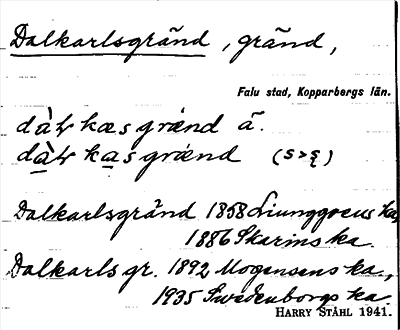 Dalkarlsgränd, gränd,
Falu stad, Kopparbergs län.
dàɫkasgränd ā.
dàɫkasgränd (s>ʂ)
Dalkarlsgränd 1858 Ljunggrens ka,
1886 Skarins ka.
Dalkarls gr. 1892 Mogensens ka.,
1935 Swedenborgs ka.
HARRY STÅHL 1941.